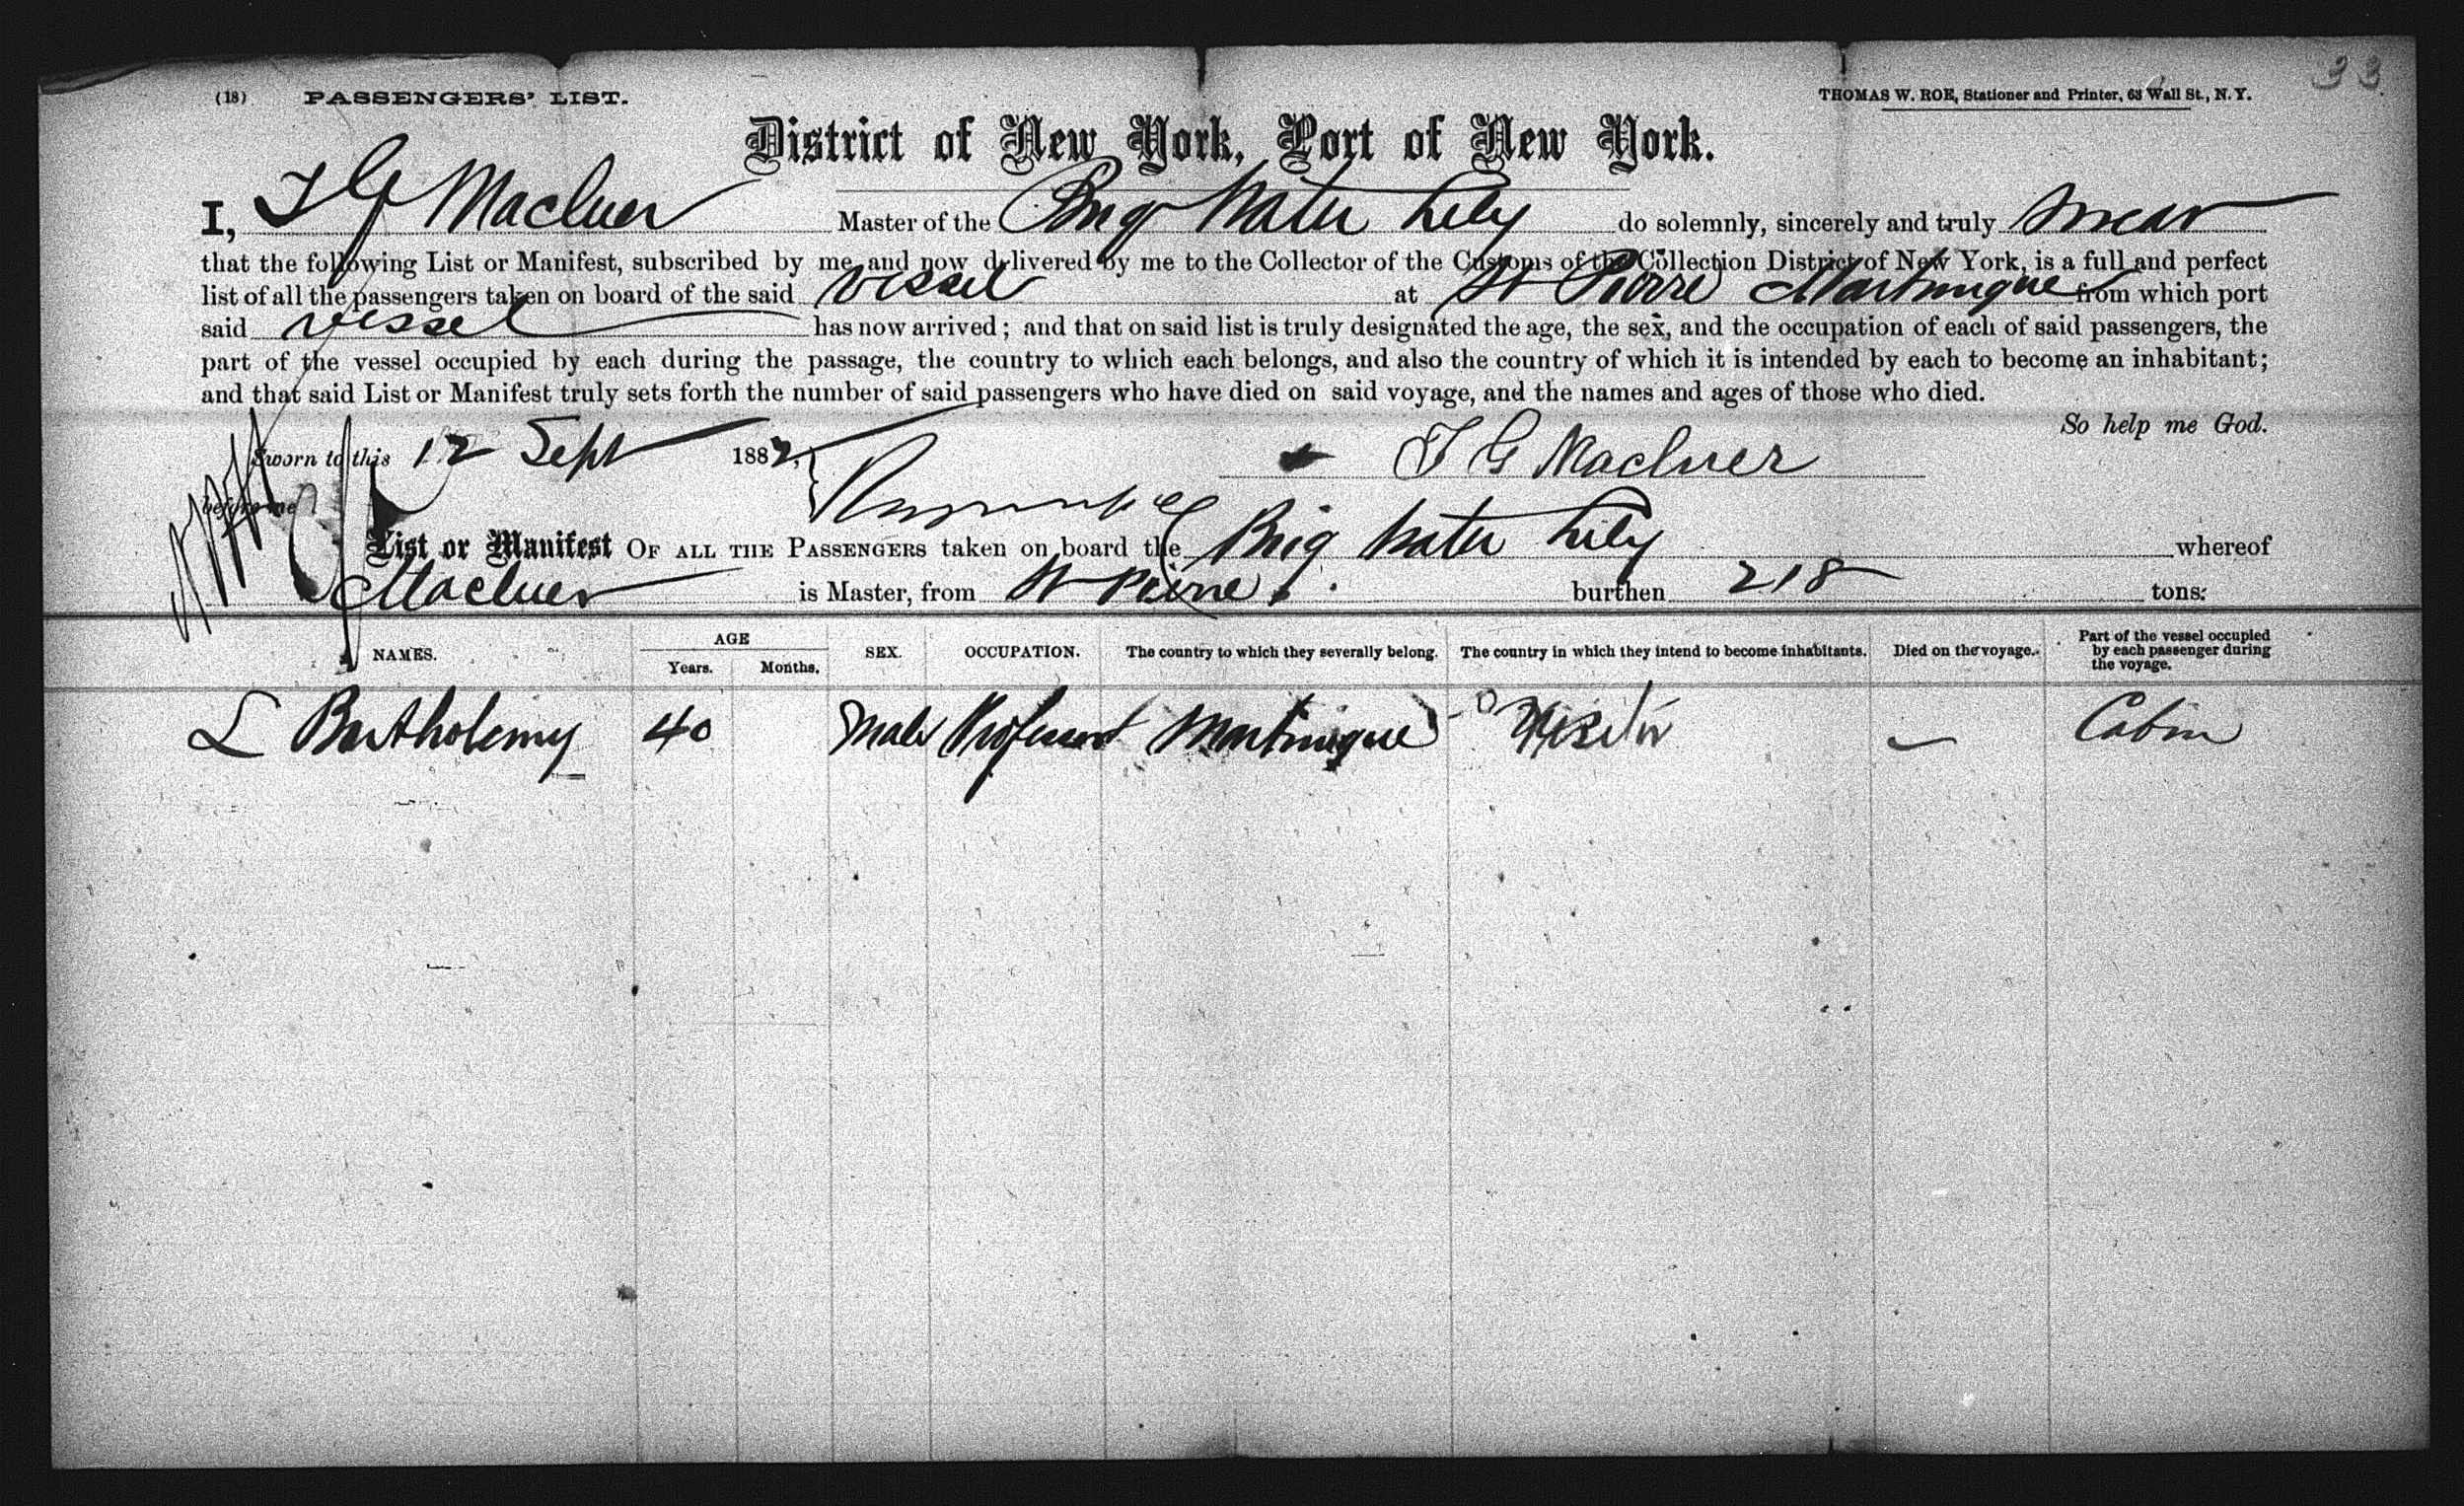 33
(18) PASSENGERS' LIST. THOMAS W. ROE, Stationer and Printer, 63 Wall St., N. Y.
District of New York, Port of New York.
I, J G MacLuer Master of the Brig Water Lily do solemnly, sincerely and truly swear
that the following List or Manifest, subscribed by me and now delivered by me to the Collector of the Customs of the Collection District of New York, is a full and perfect
list of all the passengers taken on board of the said vessel at St Pierre Martinique from which port
said vessel has now arrived; and that on said list is truly designated the age, the sex, and the occupation of each of said passengers, the
part of the vessel occupied by each during the passage, the country to which each belongs, and also the country of which it is intended by each to become an inhabitant;
and that said List or Manifest truly sets forth the number of said passengers who have died on said voyage, and the names and ages of those who died.
So help me God.
Sworn to this 12 Sept 1882, J G MacLuer
before me
List or Manifest OF ALL THE PASSENGERS taken on board the Brig Water Lily whereof
MacLuer is Master, from St Pierre burthen 218 tons:
NAMES. AGE Years. Months. SEX. OCCUPATION. The country to which they severally belong. The country in which they intend to become inhabitants. Died on the voyage. Part of the vessel occupied by each passenger during the voyage.
L Bartholemy 40 Male Professor Martinique Visitor — Cabin